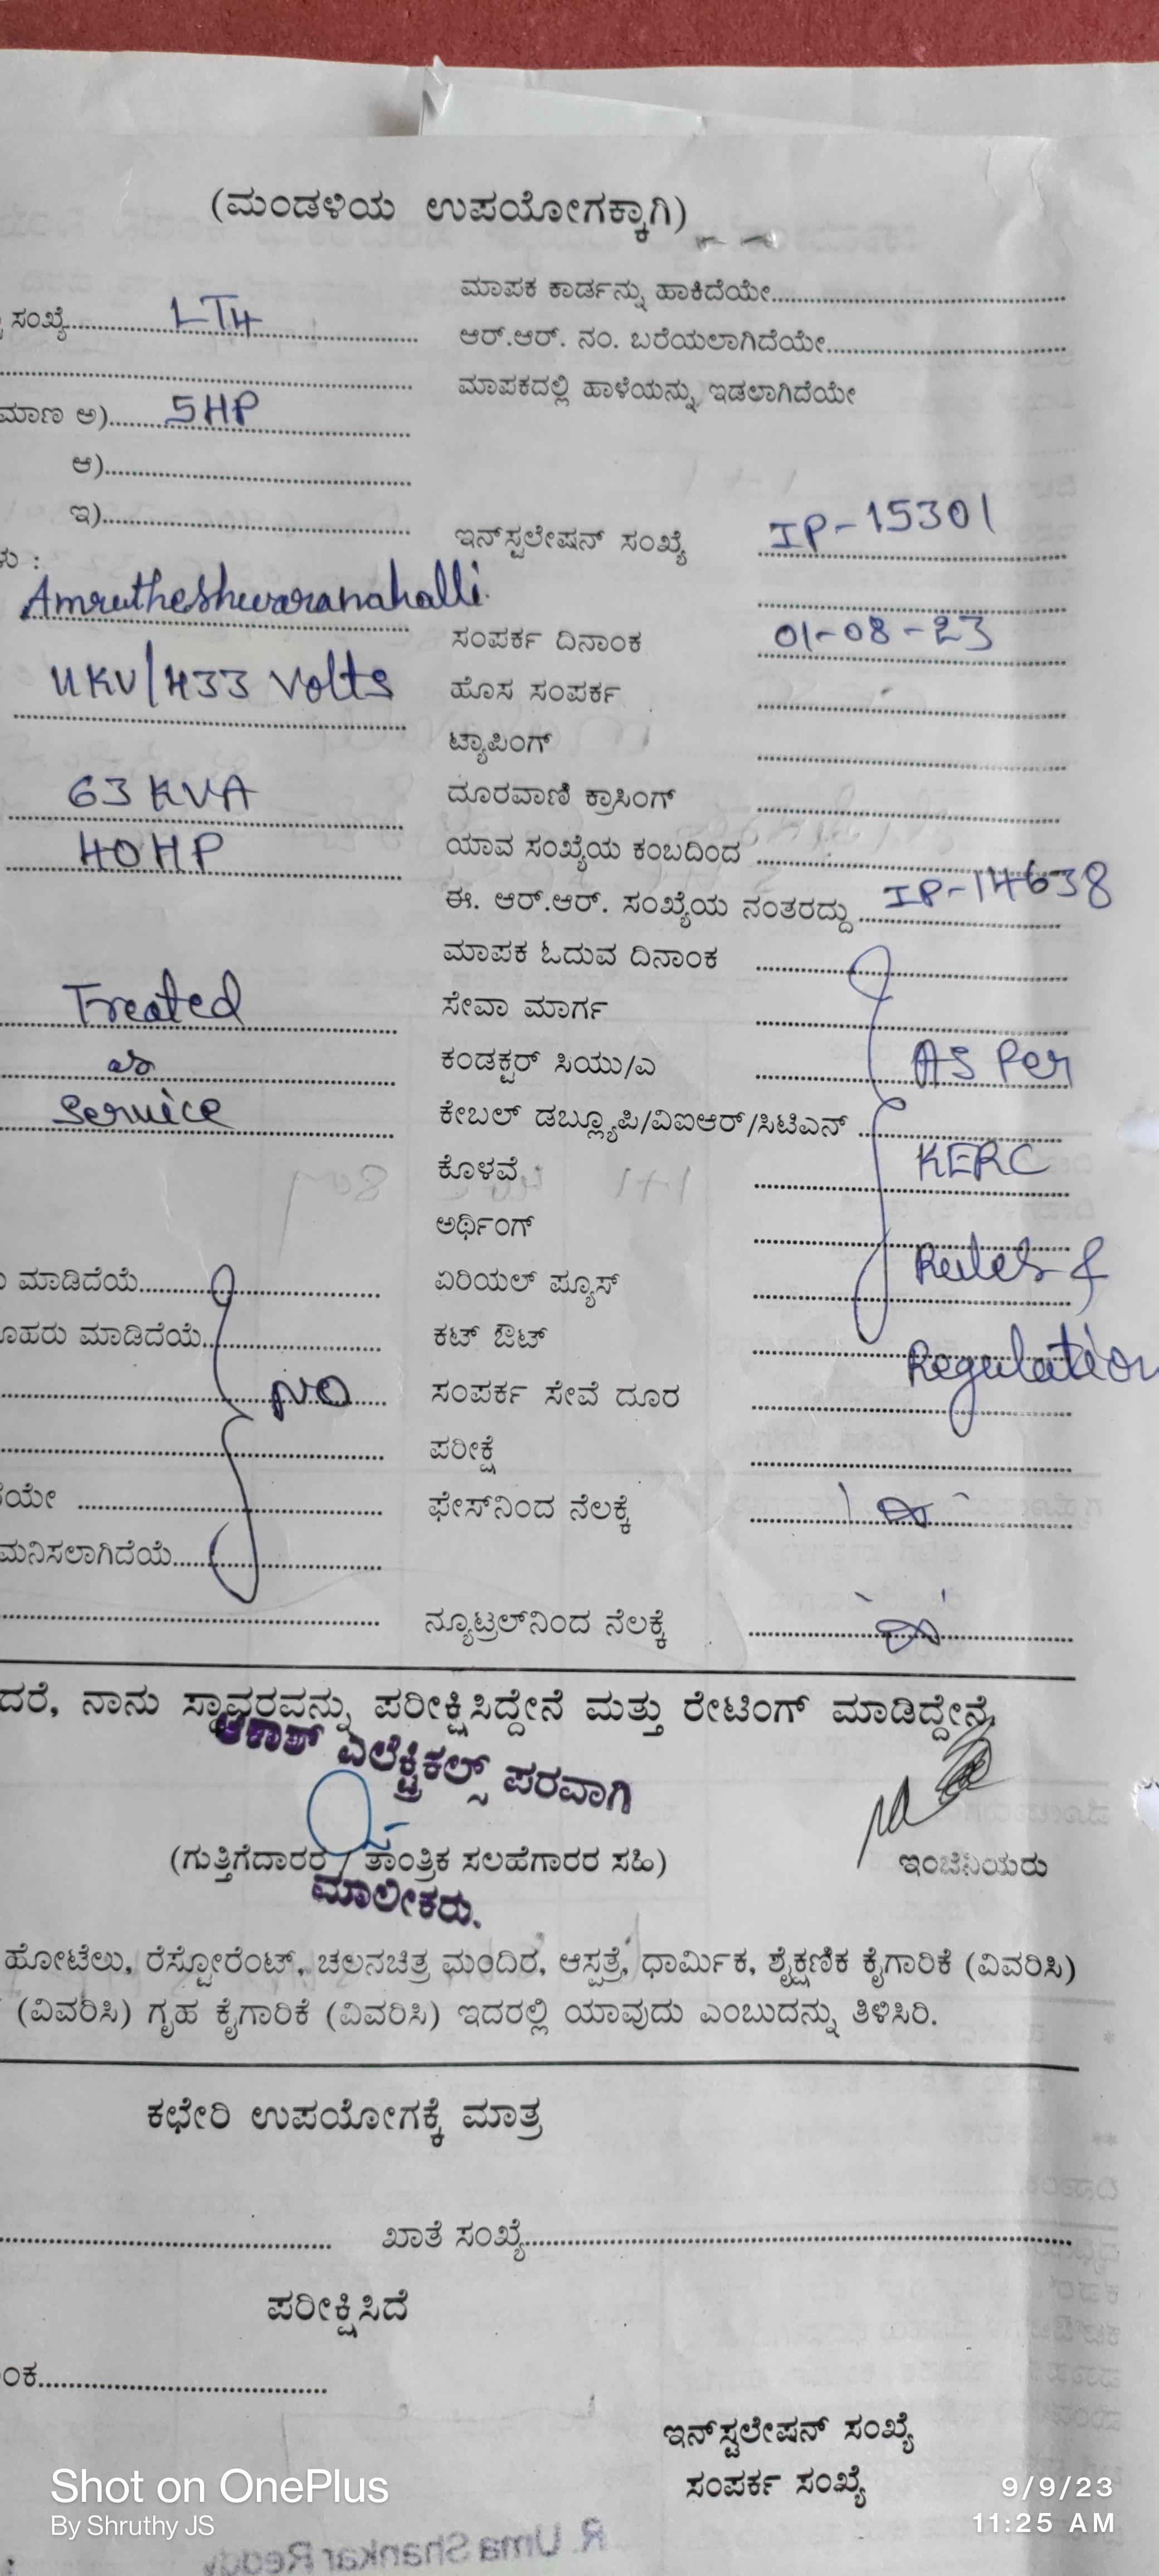 (ಮಂಡಳಿಯ ಉಪಯೋಗಕ್ಕಾಗಿ)
ಮಾಪಕ ಕಾರ್ಡನ್ನು ಹಾಕಿದೆಯೇ
ಸಂಖ್ಯೆ LT4
ಆರ್.ಆರ್. ನಂ. ಬರೆಯಲಾಗಿದೆಯೇ
ಮಾಪಕದಲ್ಲಿ ಹಾಳೆಯನ್ನು ಇಡಲಾಗಿದೆಯೇ
ಮಾಣ ಅ) 5HP
ಆ)
ಇ)
ಇನ್‌ಸ್ಟಲೇಷನ್ ಸಂಖ್ಯೆ IP-15301
ಳು :
Amrutheshwaranahalli
ಸಂಪರ್ಕ ದಿನಾಂಕ 01-08-23
11KV/433 Volts ಹೊಸ ಸಂಪರ್ಕ
ಟ್ಯಾಪಿಂಗ್
63 KVA ದೂರವಾಣಿ ಕ್ರಾಸಿಂಗ್
40HP ಯಾವ ಸಂಖ್ಯೆಯ ಕಂಬದಿಂದ
ಈ. ಆರ್.ಆರ್. ಸಂಖ್ಯೆಯ ನಂತರದ್ದು IP-14638
ಮಾಪಕ ಓದುವ ದಿನಾಂಕ
Treated ಸೇವಾ ಮಾರ್ಗ
as ಕಂಡಕ್ಟರ್ ಸಿಯು/ಎ AS Per
Service ಕೇಬಲ್ ಡಬ್ಲ್ಯೂಪಿ/ವಿಐಆರ್/ಸಿಟಿಎನ್
ಕೊಳವೆ KERC
ಅರ್ಥಿಂಗ್
ಮಾಡಿದೆಯೆ ಏರಿಯಲ್ ಫ್ಯೂಸ್ Rules &
ೂಹರು ಮಾಡಿದೆಯೆ ಕಟ್ ಔಟ್ Regulation
NO ಸಂಪರ್ಕ ಸೇವೆ ದೂರ
ಪರೀಕ್ಷೆ
ೆಯೇ ಫೇಸ್‌ನಿಂದ ನೆಲಕ್ಕೆ
ಮನಿಸಲಾಗಿದೆಯೆ
ನ್ಯೂಟ್ರಲ್‌ನಿಂದ ನೆಲಕ್ಕೆ
ದರೆ, ನಾನು ಸ್ಥಾವರವನ್ನು ಪರೀಕ್ಷಿಸಿದ್ದೇನೆ ಮತ್ತು ರೇಟಿಂಗ್ ಮಾಡಿದ್ದೇನೆ.
ಆಕಾಶ್ ಎಲೆಕ್ಟ್ರಿಕಲ್ಸ್ ಪರವಾಗಿ
(ಗುತ್ತಿಗೆದಾರರ / ತಾಂತ್ರಿಕ ಸಲಹೆಗಾರರ ಸಹಿ) ಇಂಜಿನಿಯರು
ಮಾಲೀಕರು.
ಹೋಟೆಲು, ರೆಸ್ಟೋರೆಂಟ್, ಚಲನಚಿತ್ರ ಮಂದಿರ, ಆಸ್ಪತ್ರೆ, ಧಾರ್ಮಿಕ, ಶೈಕ್ಷಣಿಕ ಕೈಗಾರಿಕೆ (ವಿವರಿಸಿ)
(ವಿವರಿಸಿ) ಗೃಹ ಕೈಗಾರಿಕೆ (ವಿವರಿಸಿ) ಇದರಲ್ಲಿ ಯಾವುದು ಎಂಬುದನ್ನು ತಿಳಿಸಿರಿ.
ಕಛೇರಿ ಉಪಯೋಗಕ್ಕೆ ಮಾತ್ರ
ಖಾತೆ ಸಂಖ್ಯೆ
ಪರೀಕ್ಷಿಸಿದೆ
ಂಕ
ಇನ್‌ಸ್ಟಲೇಷನ್ ಸಂಖ್ಯೆ
ಸಂಪರ್ಕ ಸಂಖ್ಯೆ
Shot on OnePlus
By Shruthy JS
9/9/23
11:25 AM
R. Uma Shankar Reddy